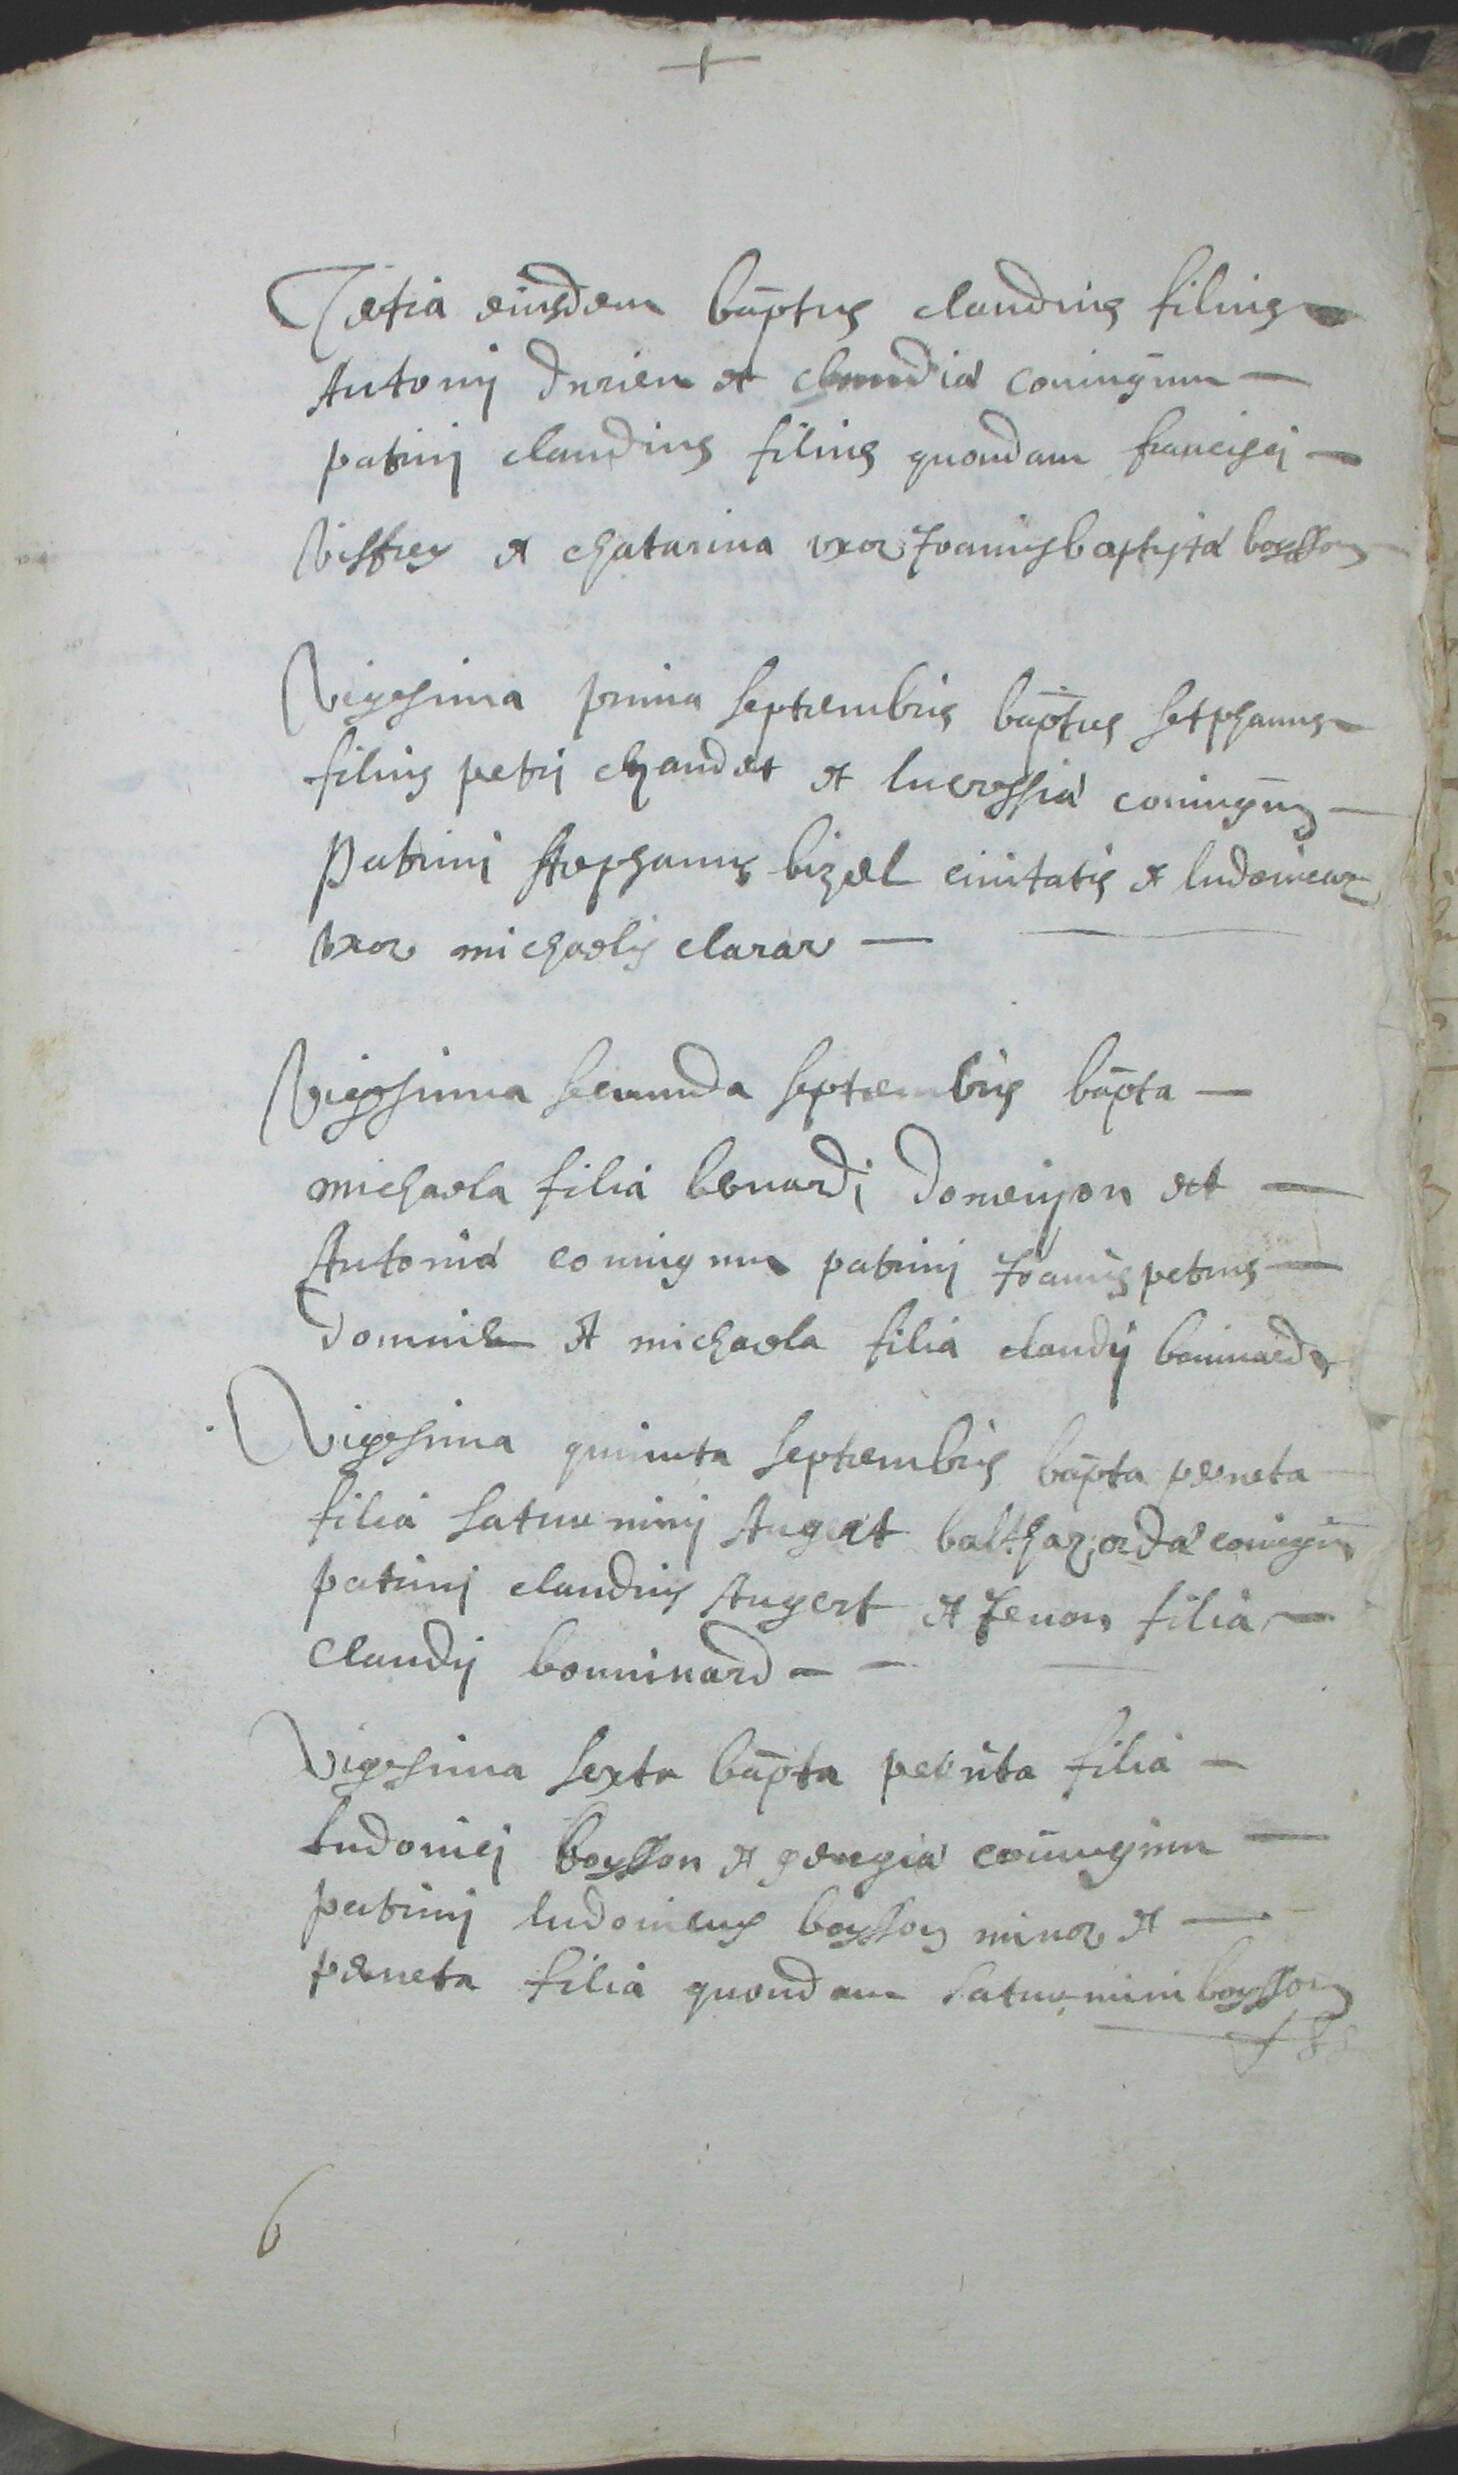 +
Tertia eiusdem bāptus claudius filius
Antonij durieu et claudiæ coniugum
patrini claudius filius quondam francisci
Viffrey et chatarina uxor Joannisbaptistæ boysson
Vigesima prima septembris bāptus setphanus
filius petri chaudet et lucressiæ coniugū
Patrini stephanus bizel civitatis et ludovica
uxor michaelis clarar
Vigesima secunda septembris bāpta
michaela filia benardi domeyson et
Antoniæ coniugum patrini Joannispetrus
et michaela filia claudij bonimard
Vigesima quinta septembris bāpta perneta
filia saturnini Augert balthazardæ coniugū
patrini claudius Augert et Jenon filia
Claudij bonninard
Vigesima sexta bāpta pernēta filia
ludovici boysson et georgiæ coniugum
patrini ludovicus boysson minor et
perneta filia quondam saturnini boysson
6